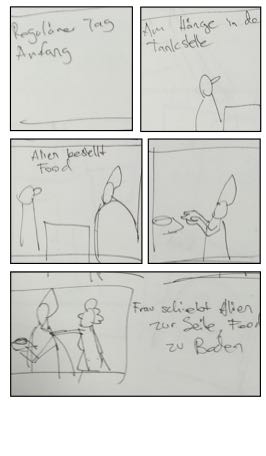 Regulärer Tag
Anfang
Am Hänge in de
Tankstelle
Alien bestellt
Food
Frau schiebt Alien
zur Seite, Food
zu Boden